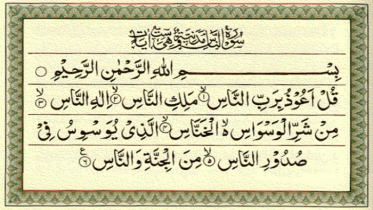 سُورَةُ النَّاسِ مَدَنِيَّةٌ وَهِيَ سِتُّ اٰيَاتٍ
بِسْمِ اللهِ الرَّحْمٰنِ الرَّحِيْمِ
قُلْ اَعُوْذُ بِرَبِّ النَّاسِ ۙ۱ مَلِكِ النَّاسِ ۙ۲ اِلٰهِ النَّاسِ ۙ۳
مِنْ شَرِّ الْوَسْوَاسِ ەۙ الْخَنَّاسِ ۙ۴ الَّذِیْ یُوَسْوِسُ فِیْ
صُدُوْرِ النَّاسِ ۙ۵ مِنَ الْجِنَّةِ وَالنَّاسِ ۶ع